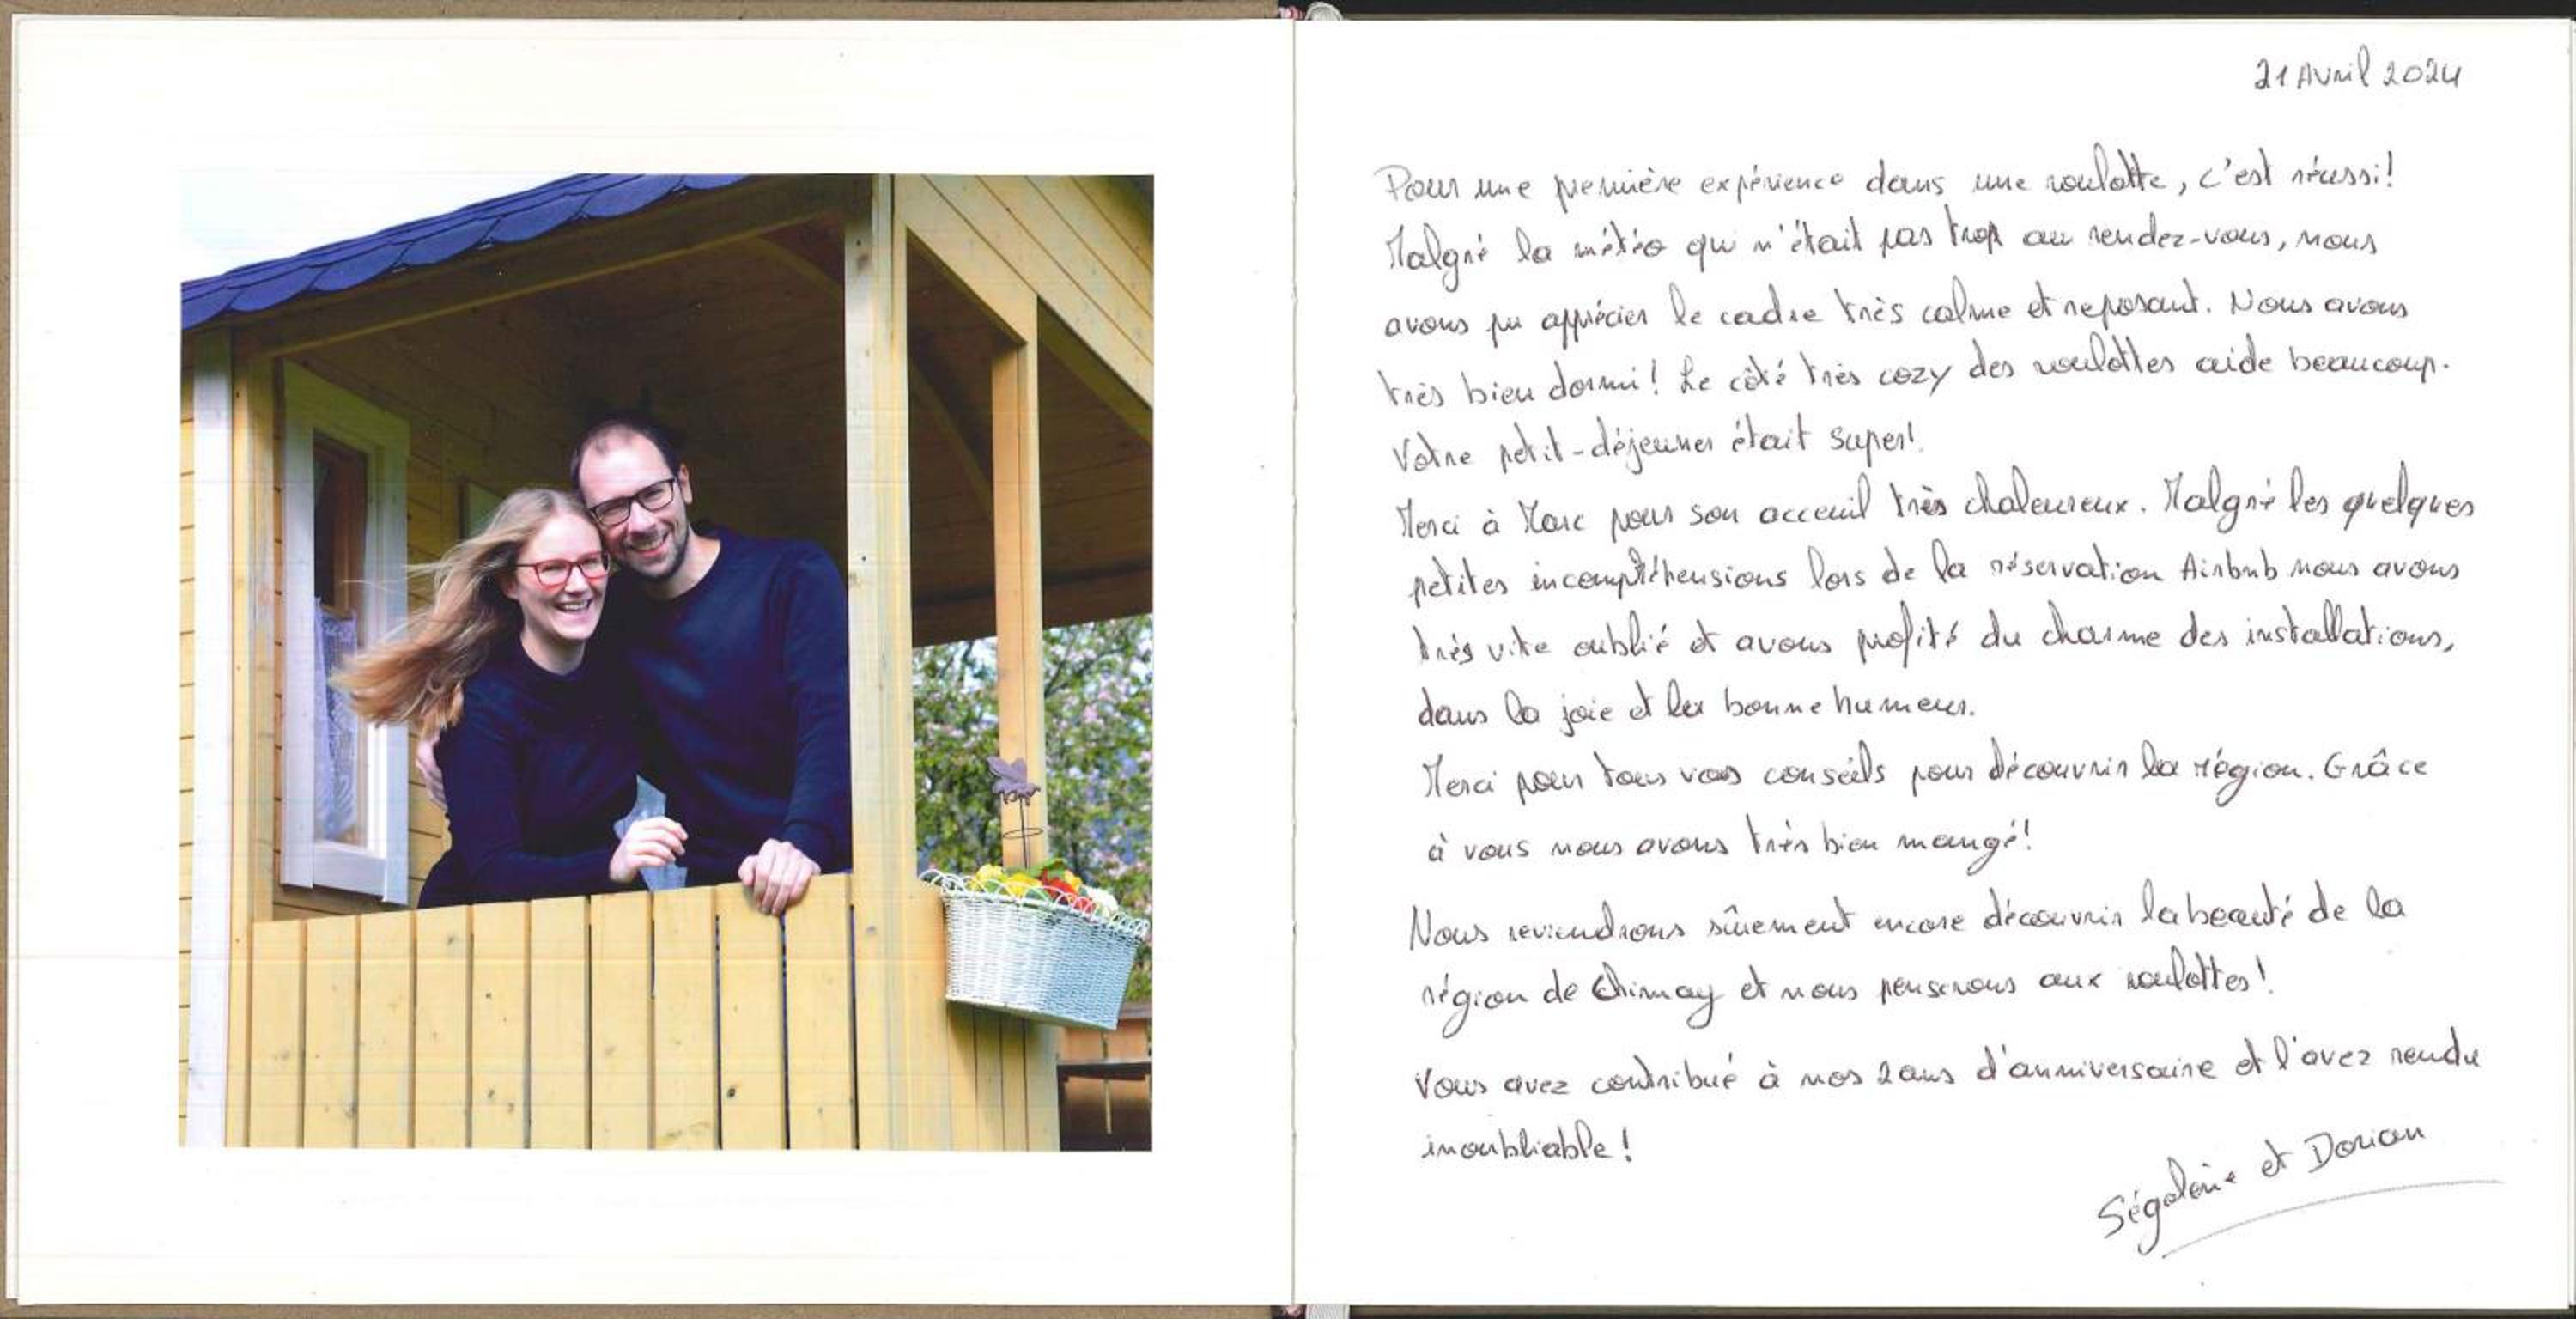 21 Avril 2024
Pour une première expérience dans une roulotte, c'est réussi!
Malgré la météo qui n'était pas trop au rendez-vous, nous
avons pu apprécier le cadre très calme et reposant. Nous avons
très bien dormi! Le côté très cozy des roulottes aide beaucoup.
Votre petit-déjeuner était super!
Merci à Marc pour son acceuil très chaleureux. Malgré les quelques
petites incompréhensions lors de la réservation Airbnb nous avons
très vite oublié et avons profité du charme des installations,
dans la joie et la bonne humeur.
Merci pour tous vos conseils pour découvrir la région. Grâce
à vous nous avons très bien mangé!
Nous reviendrons sûrement encore découvrir la beauté de la
région de Chimay et nous penserons aux roulottes!
Vous avez contribué à nos 2 ans d'anniversaire et l'avez rendu
inoubliable!
et Dorian